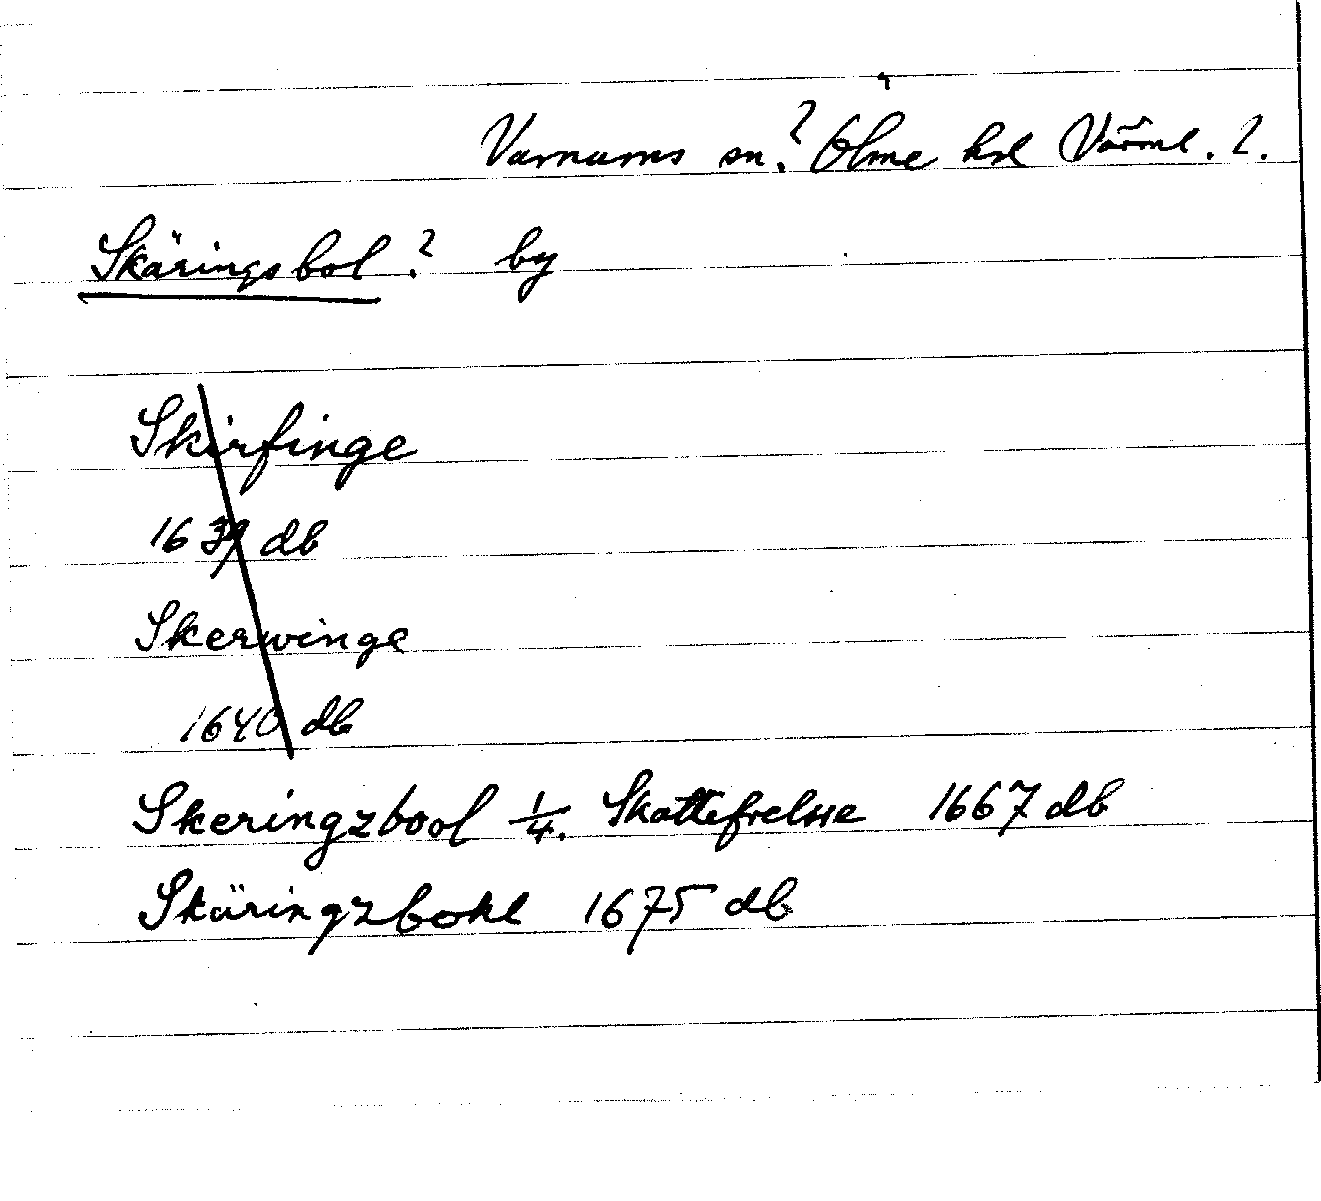 Varnums sn.? Ölme hd Värml. ?.
Skäringsbol? by
Skirfinge
1639 db
Skerwinge
1640 db
Skeringzbool 1/4. Skattefrelsse 1667 db
Skäringzbohl 1675 db